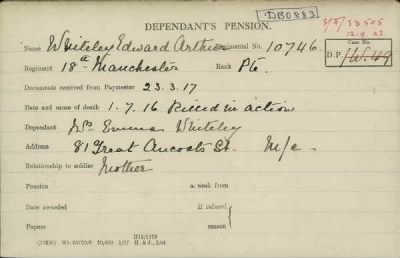 DEPENDANT'S PENSION.
DB0883
3/5/38505
12.9.23.
Name Whiteley Edward Arthur Regimental No. 10746
Case No.
Regiment 18th Manchester Rank Pte.
D.P. /W.49
Documents received from Paymaster 23.3.17
Date and cause of death 1.7.16 Killed in action
Dependant Mrs Emma Whiteley
Address 81 Great Ancoats St. M/c.
Relationship to soldier Mother
Pension a week from
Date awarded If refused,
Papers reason
H. & J., Ltd.